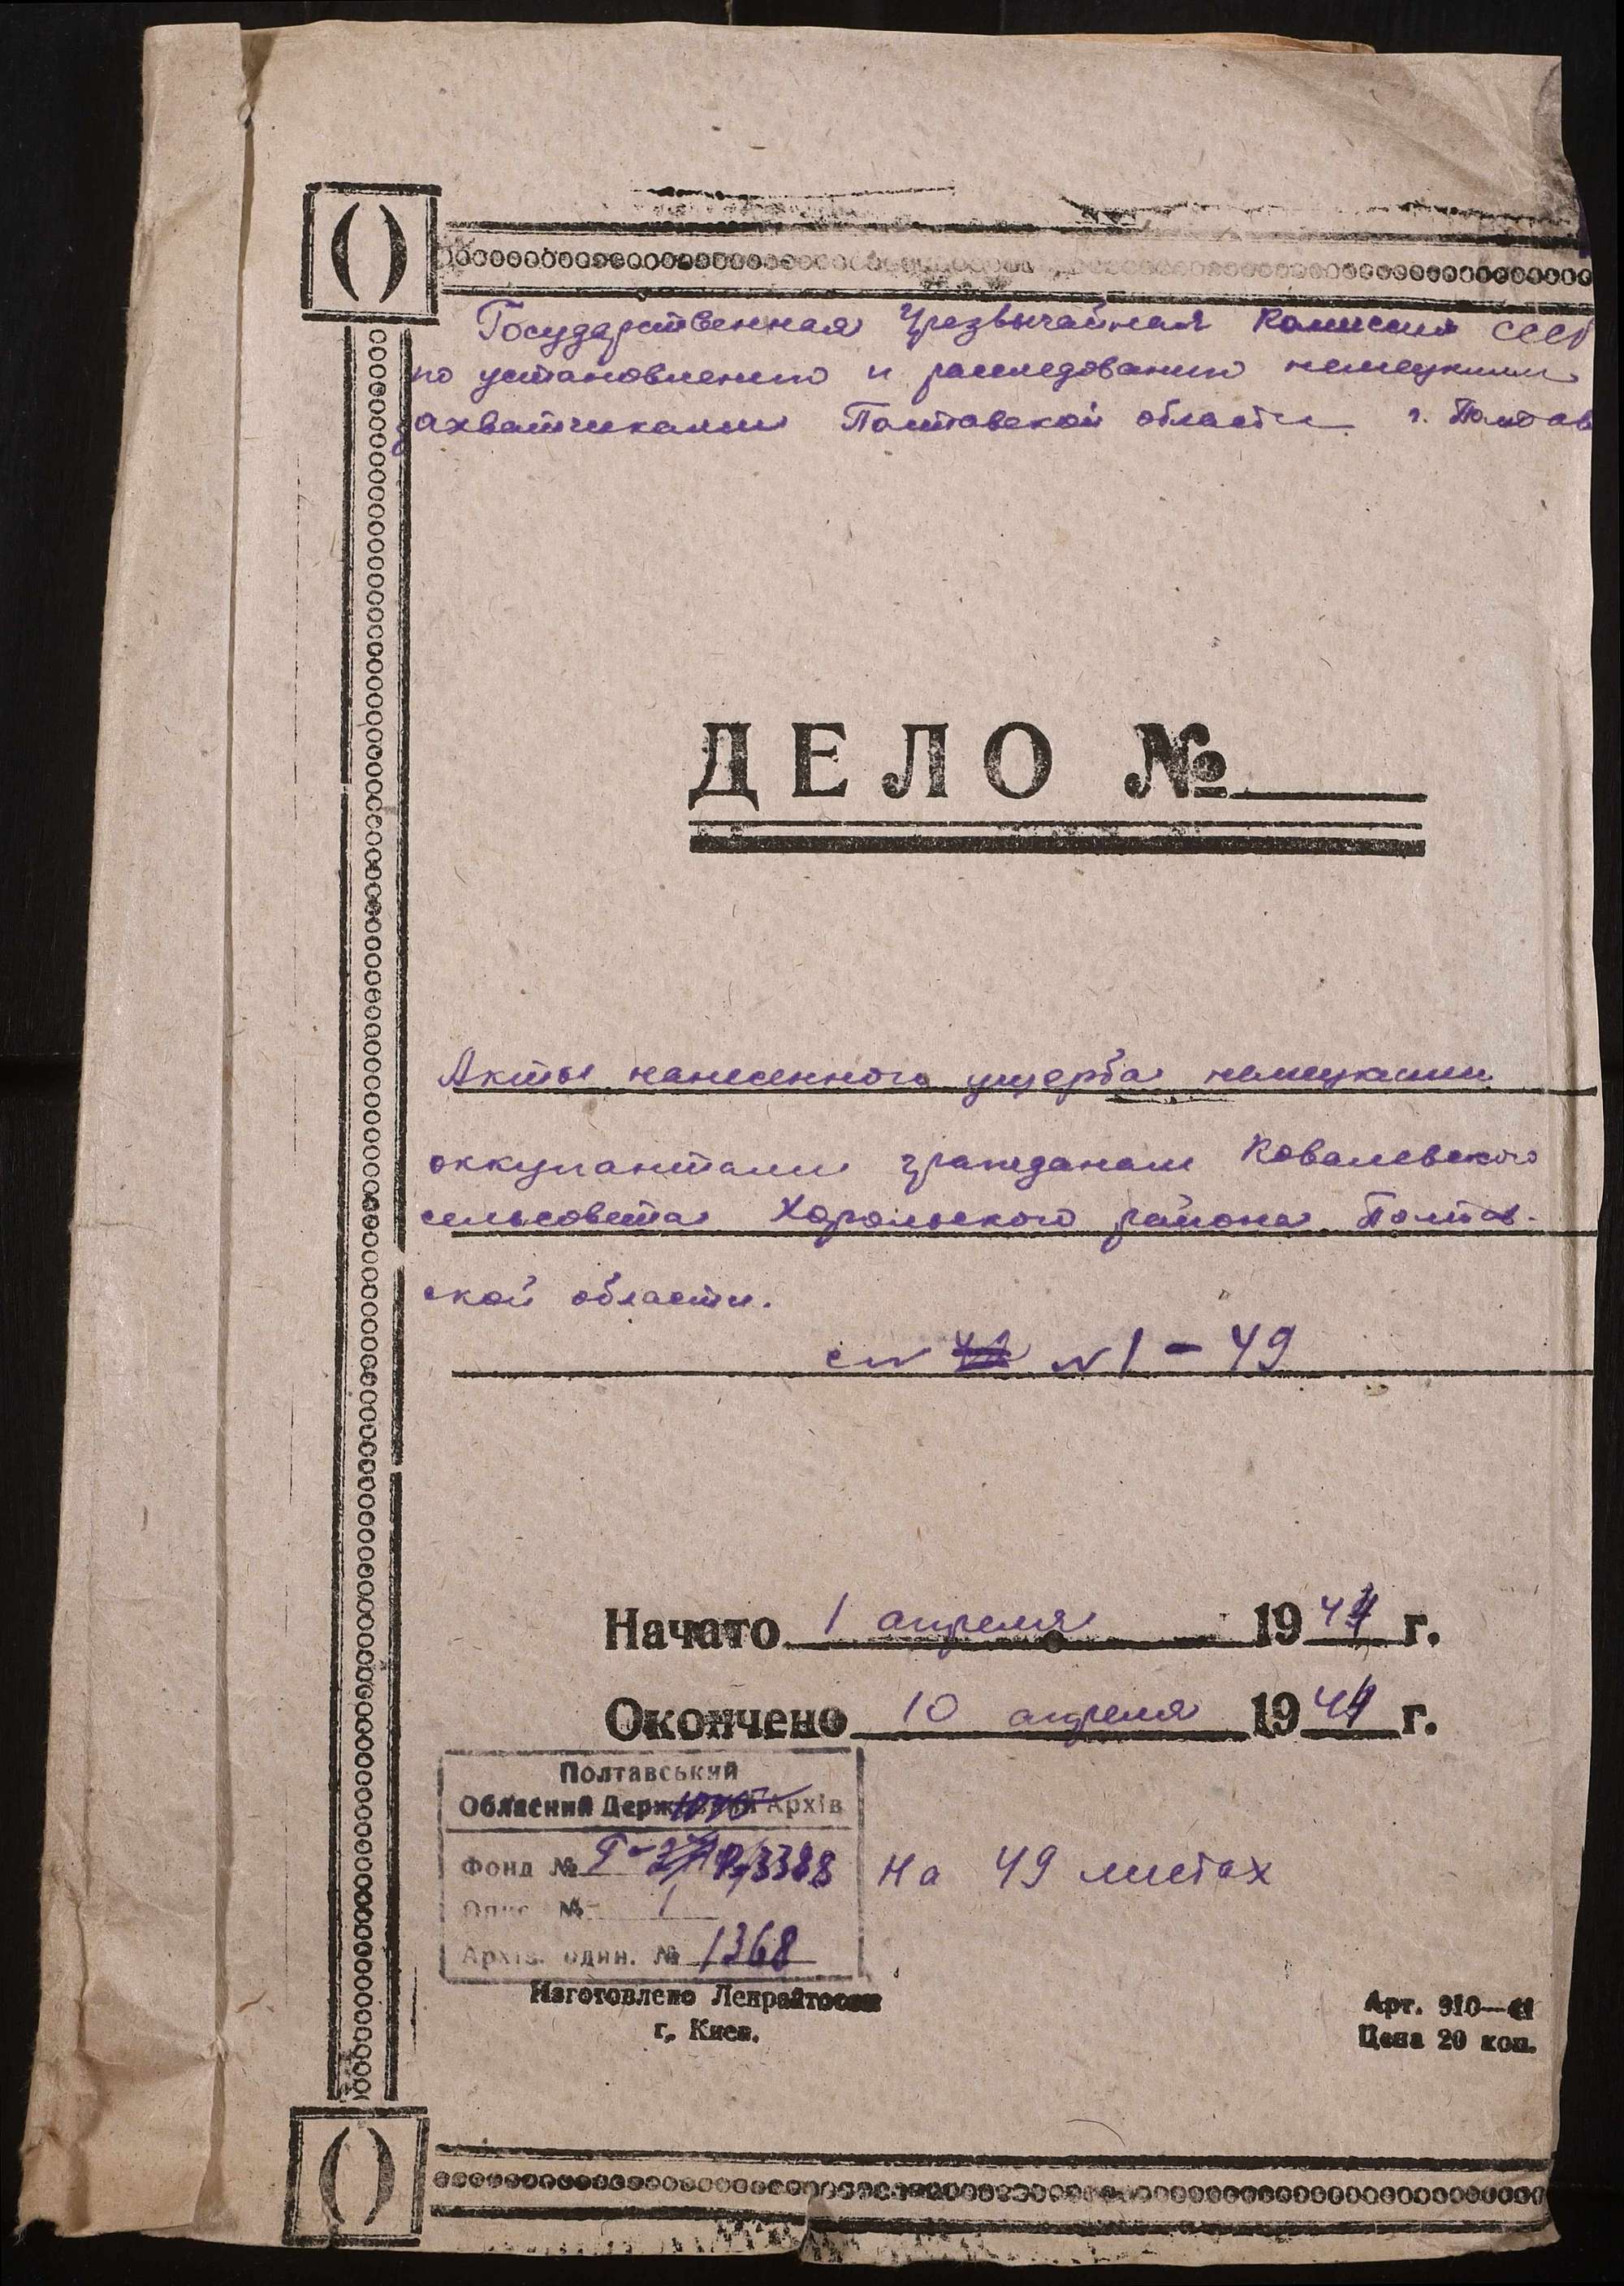 Государственная Чрезвычайная Комиссия СССР
по установлению и расследованию немецкими
захватчиками Полтавской области г. Полтав
ДЕЛО №
Акты нанесенного ущерба немецкими
оккупантами гражданам Ковалевского
сельсовета Хорольского района Полтав-
ской области.
с № № 1 - 49
Начато 1 апреля 1944 г.
Окончено 10 апреля 1944 г.
Полтавський
Обласний Державний Архів
Фонд № Р-3388
На 49 листах
Опис № 1
Архів. один. № 1368
Изготовлено
г. Киев.
Арт. 310—41
Цена 20 коп.